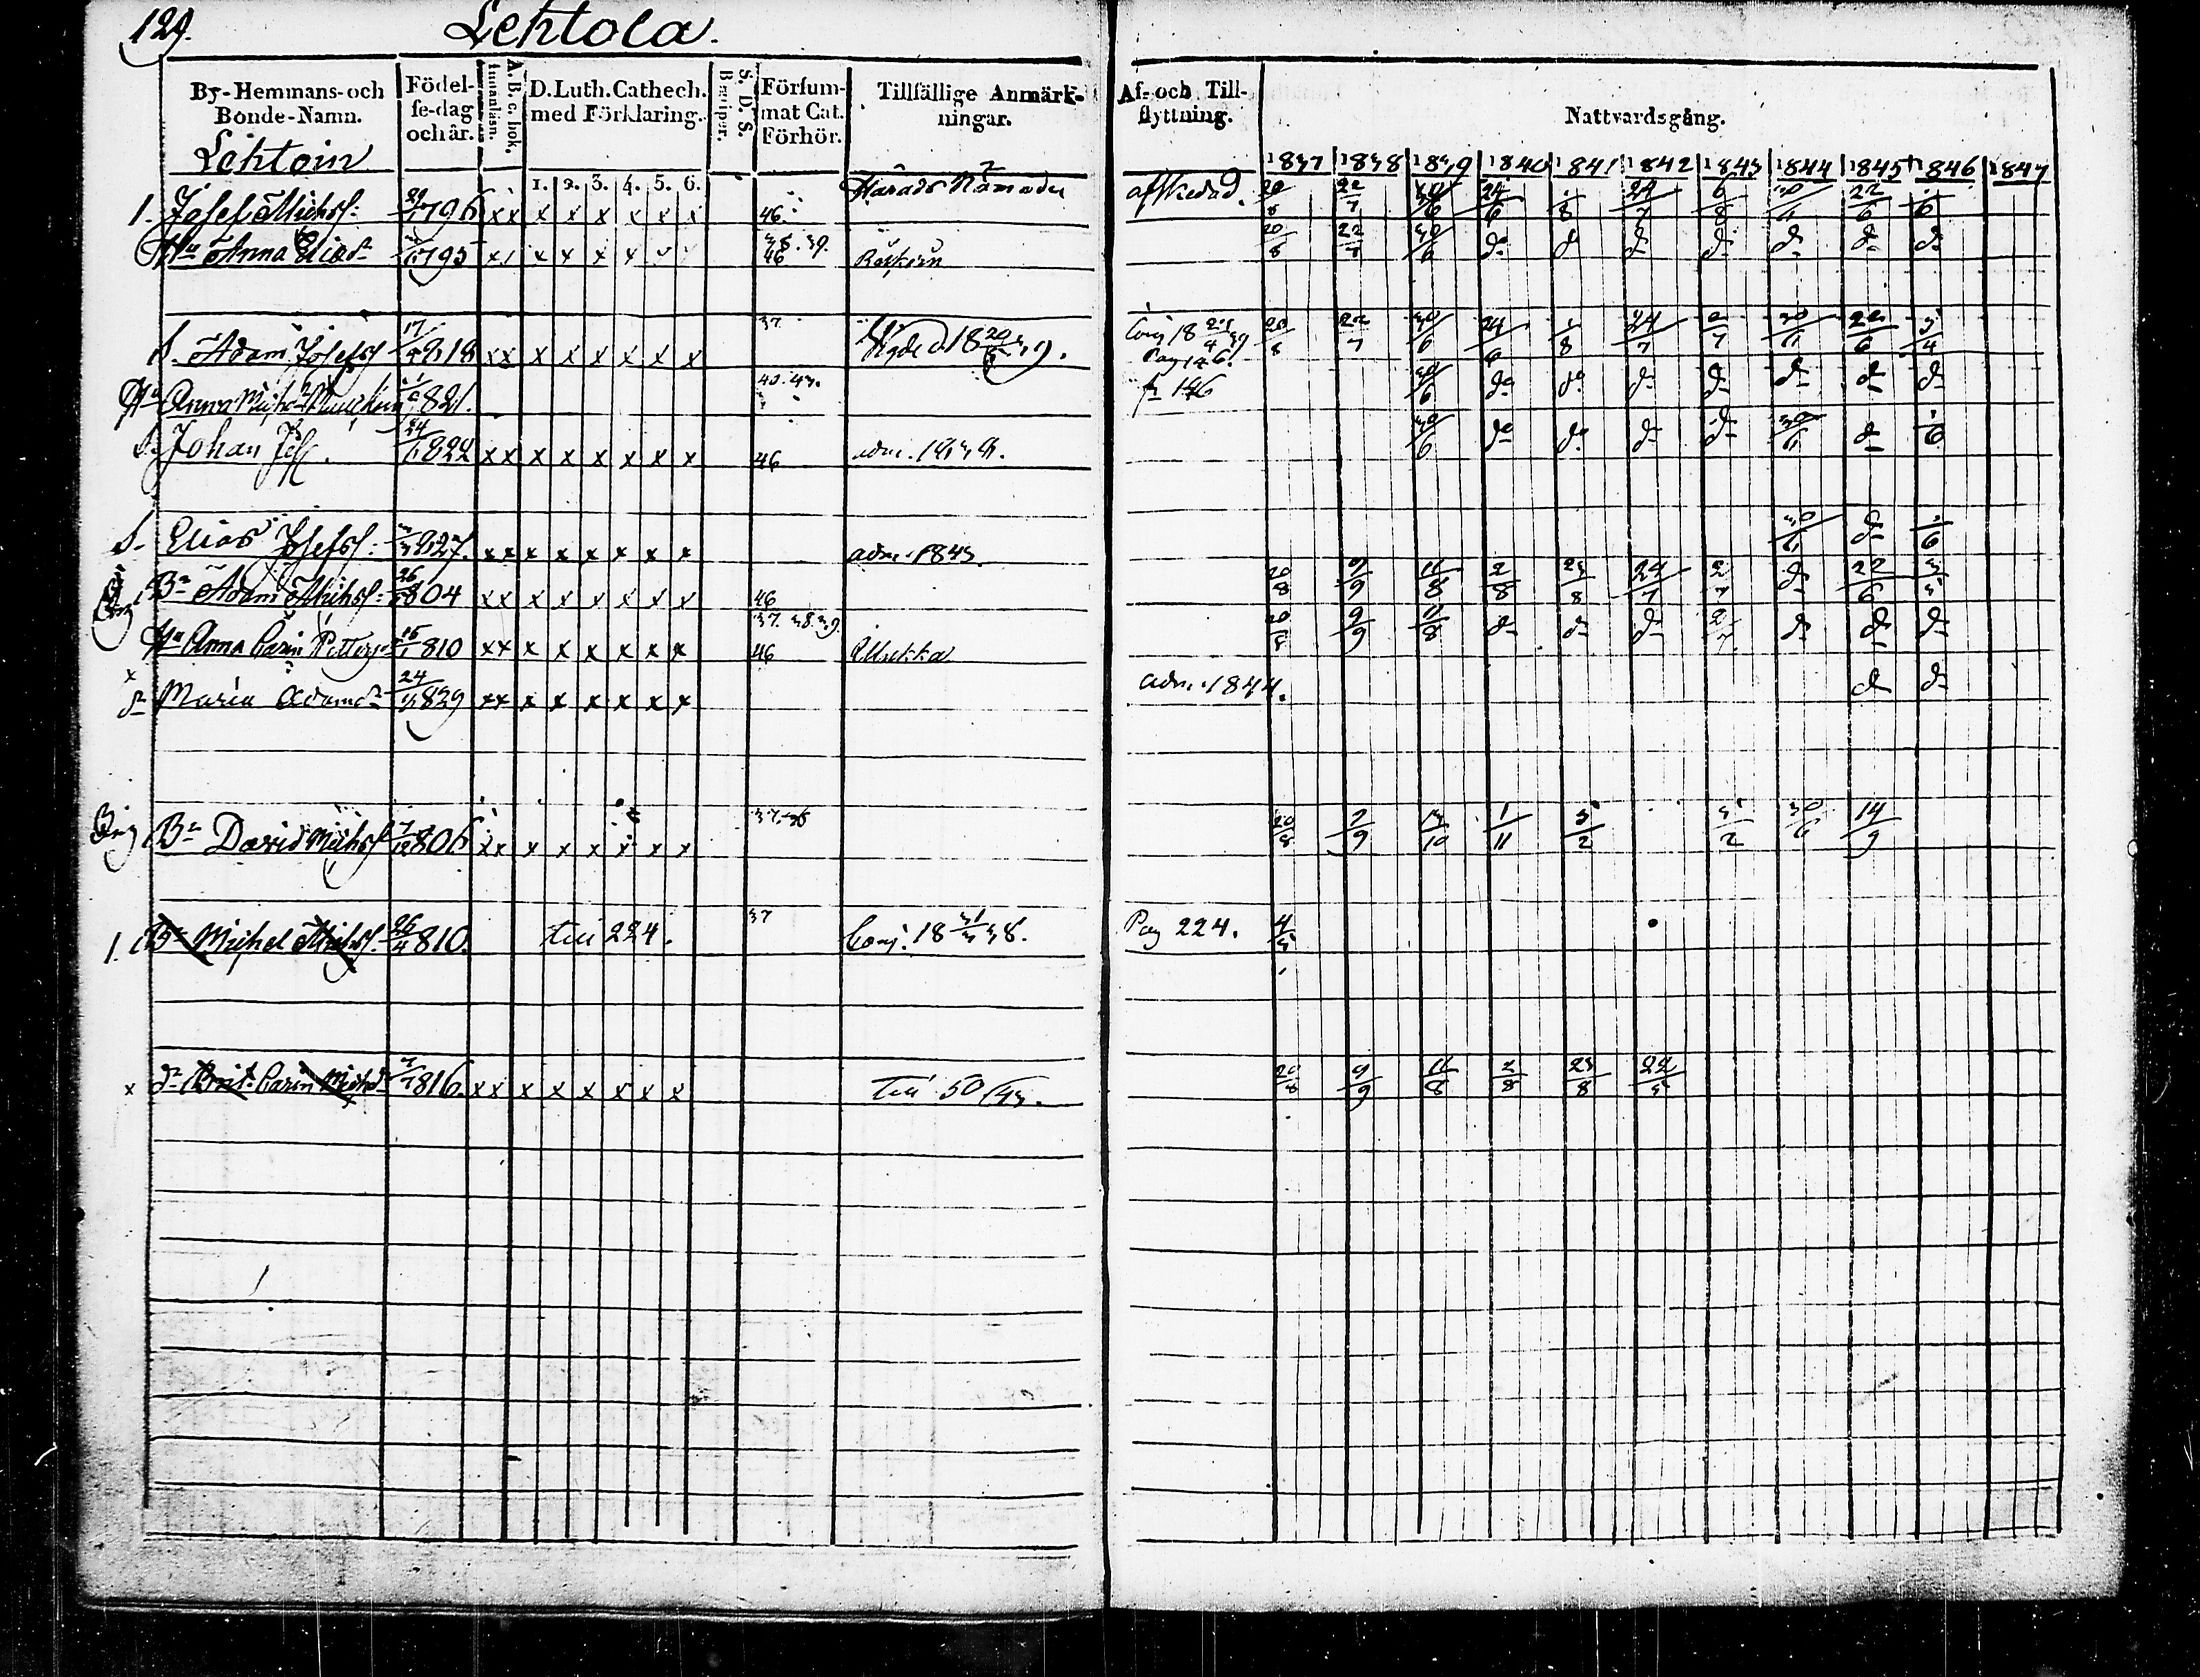 129. Lehtola.
By-Hemmans-och Bonde-Namn.
Födel-se-dag och år.
A. B. c. bok. Innanläsn.
D. Luth. Cathech. med Förklaring.
S. D. S. Begriper.
Försum-mat Cat. Förhör.
Tillfällige Anmärk-ningar.
Af- och Till-flyttning.
Nattvardsgång.
Lehtoin
1. 2. 3. 4. 5. 6.
1837 1838 1839 1840 1841 1842 1843 1844 1845 1846 1847
1. Josef Michs. 1796 x x x x x x x x 46 Härads Nämndem afskedad. 20/8 22/7 30/6 24/6 /8 24/7 6/8 30/6 22/6 /6
Hu Anna Eliasdr 1795 46 20/8 22/7 30/6 do do do do do do do
S. Adam Josefss 17/ 1818 x x x x x x x x 37 20/8 22/7 30/6 24/6 /8 24/7 2/7 30/6 22/6 3/4
Hu Anna Michsdr 1821. 40. 43. 30/6 do do do do do do do
S. Johan Jss. 24/ 1822 x x x x x x x x 46 adm. 1838. 30/6 do do do do 30/6 do /6
S. Elias Josefss. 1827. x x x x x x x x adm. 1843. 30/6 do /6
Br Adam Michss. 26/ 1804 x x x x x x x x 46 20/8 9/9 11/8 2/8 23/8 24/7 2/7 do 22/6 3/5
Hu Anna Carin Pettersdr 1810 x x x x x x x x 37. 38. 39. 46 Mukka 20/8 9/9 11/8 do do do 2/7 do do do
x dr Maria Adamsdr 24/11 1829 x x x x x x x x adm. 1844. do do
Br David Michss 7/12 1806 x x x x x x x x 37. 20/8 9/9 13/10 1/11 5/2 5/2 30/6 14/9
1. Br Michel Michss. 26/4 1810. till 224. 37 Conj. 18 31/3 38. Pag 224. 4/5
x dr Brit. Carin Michsdr 1816. x x x x x x x x till 50/43. 20/8 9/9 11/8 2/8 23/8 22/5